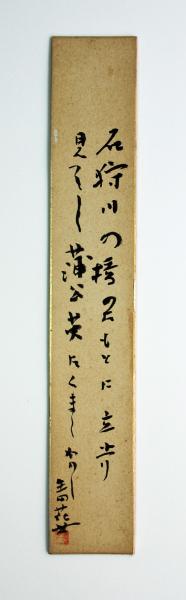 石狩川の橋のたもとに立止り
見てし蒲公英たくましかりし
生田花世